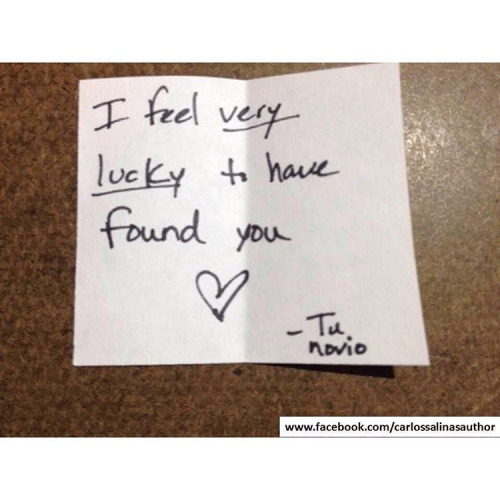 I feel very
lucky to have
found you
- Tu
novio
www.facebook.com/carlossalinasauthor